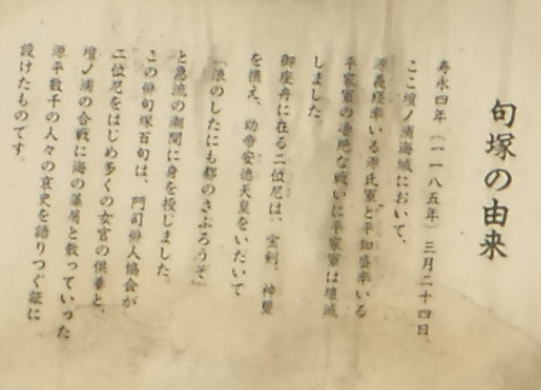 句塚の由来
寿永四年(一一八五年)三月二十四日、
ここ壇ノ浦海域において、
源義経率いる源氏軍と平知盛率いる
平家軍の凄絶な戦いに平家軍は壊滅
しました
御座舟に在る二位尼は、宝剣、神璽
を携え、幼帝安徳天皇をいだいて
「浪のしたにも都のさぶろうぞ」
と急流の潮間に身を投じました。
この俳句塚百句は、門司俳人協会が
二位尼をはじめ多くの女官の供養と、
壇ノ浦の合戦に海の藻屑と散っていった
源平数千の人々の哀史を語りつぐ証に
設けたものです。